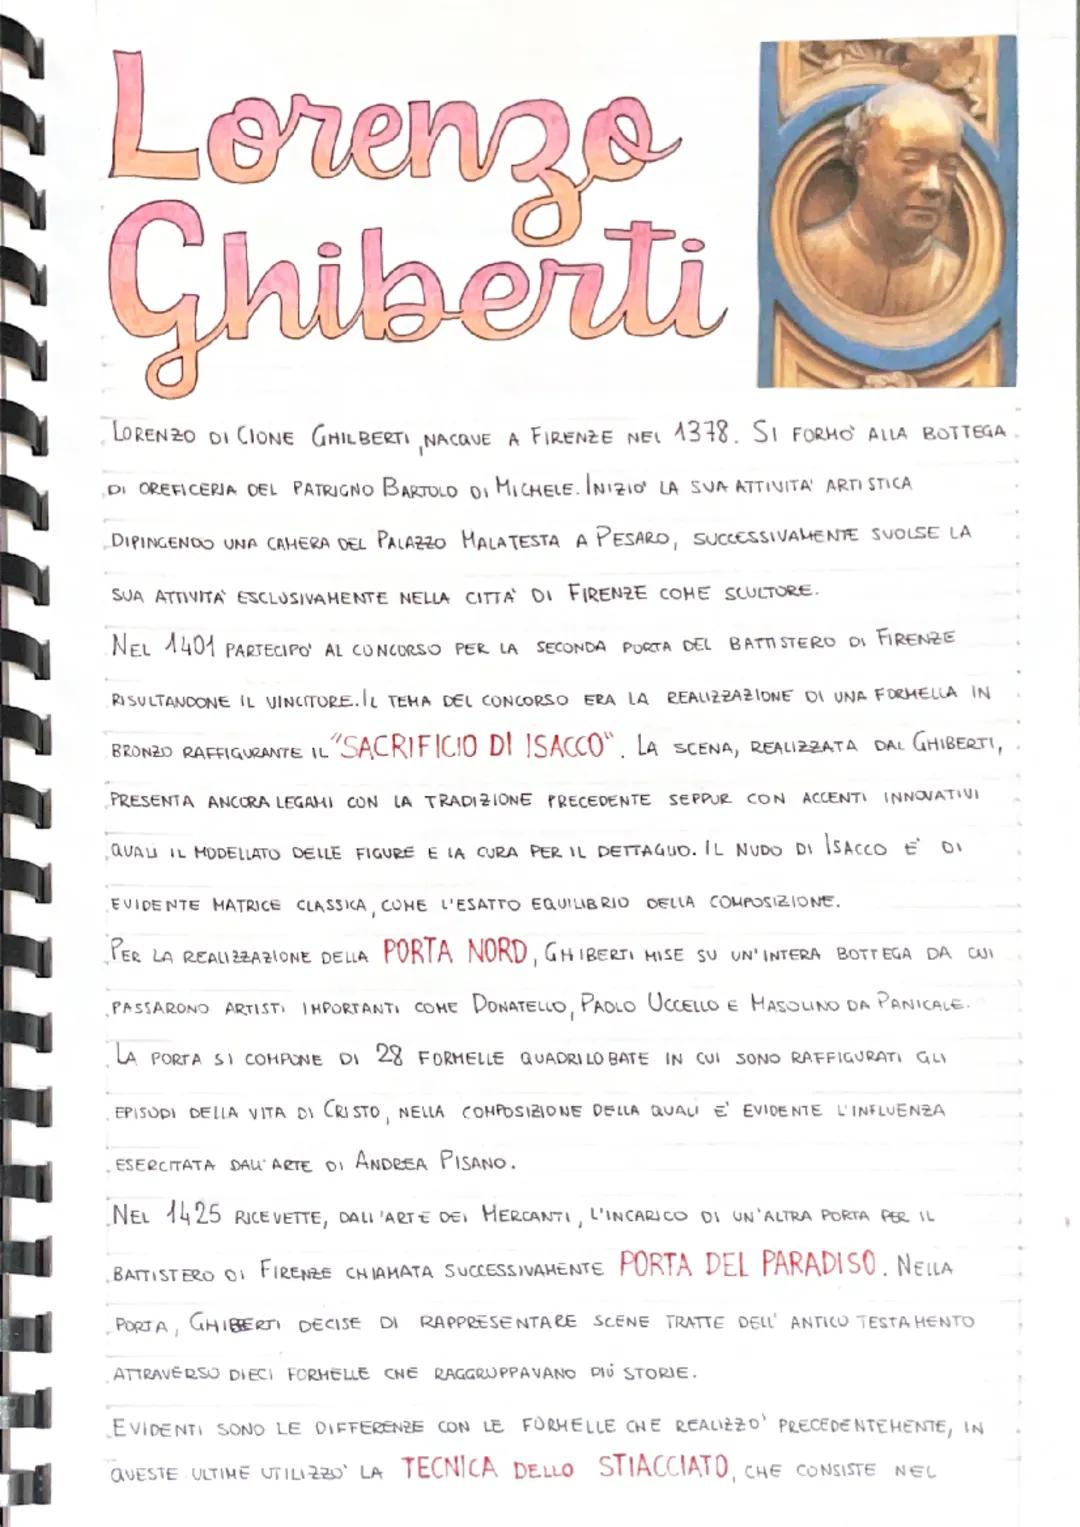 Lorenzo
Ghiberti
LORENZO DI CIONE GHILBERTI, NACQUE A FIRENZE NEL 1378. SI FORMO' ALLA BOTTEGA
DI OREFICERIA DEL PATRIGNO BARTOLO DI MICHELE. INIZIO' LA SUA ATTIVITA' ARTISTICA
DIPINGENDO UNA CAMERA DEL PALAZZO MALATESTA A PESARO, SUCCESSIVAMENTE SVOLSE LA
SUA ATTIVITA' ESCLUSIVAMENTE NELLA CITTA' DI FIRENZE COME SCULTORE.
NEL 1401 PARTECIPO' AL CONCORSO PER LA SECONDA PORTA DEL BATTISTERO DI FIRENZE
RISULTANDONE IL VINCITORE. IL TEMA DEL CONCORSO ERA LA REALIZZAZIONE DI UNA FORMELLA IN
BRONZO RAFFIGURANTE IL "SACRIFICIO DI ISACCO". LA SCENA, REALIZZATA DAL GHIBERTI,
PRESENTA ANCORA LEGAMI CON LA TRADIZIONE PRECEDENTE SEPPUR CON ACCENTI INNOVATIVI
QUALI IL MODELLATO DELLE FIGURE E LA CURA PER IL DETTAGLIO. IL NUDO DI ISACCO E' DI
EVIDENTE MATRICE CLASSICA, COME L'ESATTO EQUILIBRIO DELLA COMPOSIZIONE.
PER LA REALIZZAZIONE DELLA PORTA NORD, GHIBERTI MISE SU UN'INTERA BOTTEGA DA CUI
PASSARONO ARTISTI IMPORTANTI COME DONATELLO, PAOLO UCCELLO E MASOLINO DA PANICALE.
LA PORTA SI COMPONE DI 28 FORMELLE QUADRILOBATE IN CUI SONO RAFFIGURATI GLI
EPISODI DELLA VITA DI CRISTO, NELLA COMPOSIZIONE DELLA QUALI E' EVIDENTE L'INFLUENZA
ESERCITATA DALL'ARTE DI ANDREA PISANO.
NEL 1425 RICEVETTE, DALL'ARTE DEI MERCANTI, L'INCARICO DI UN'ALTRA PORTA PER IL
BATTISTERO DI FIRENZE CHIAMATA SUCCESSIVAMENTE PORTA DEL PARADISO. NELLA
PORTA, GHIBERTI DECISE DI RAPPRESENTARE SCENE TRATTE DELL' ANTICO TESTAMENTO
ATTRAVERSO DIECI FORMELLE CHE RAGGRUPPAVANO PIÙ STORIE.
EVIDENTI SONO LE DIFFERENZE CON LE FORMELLE CHE REALIZZO' PRECEDENTEMENTE, IN
QUESTE ULTIME UTILIZZO' LA TECNICA DELLO STIACCIATO, CHE CONSISTE NEL